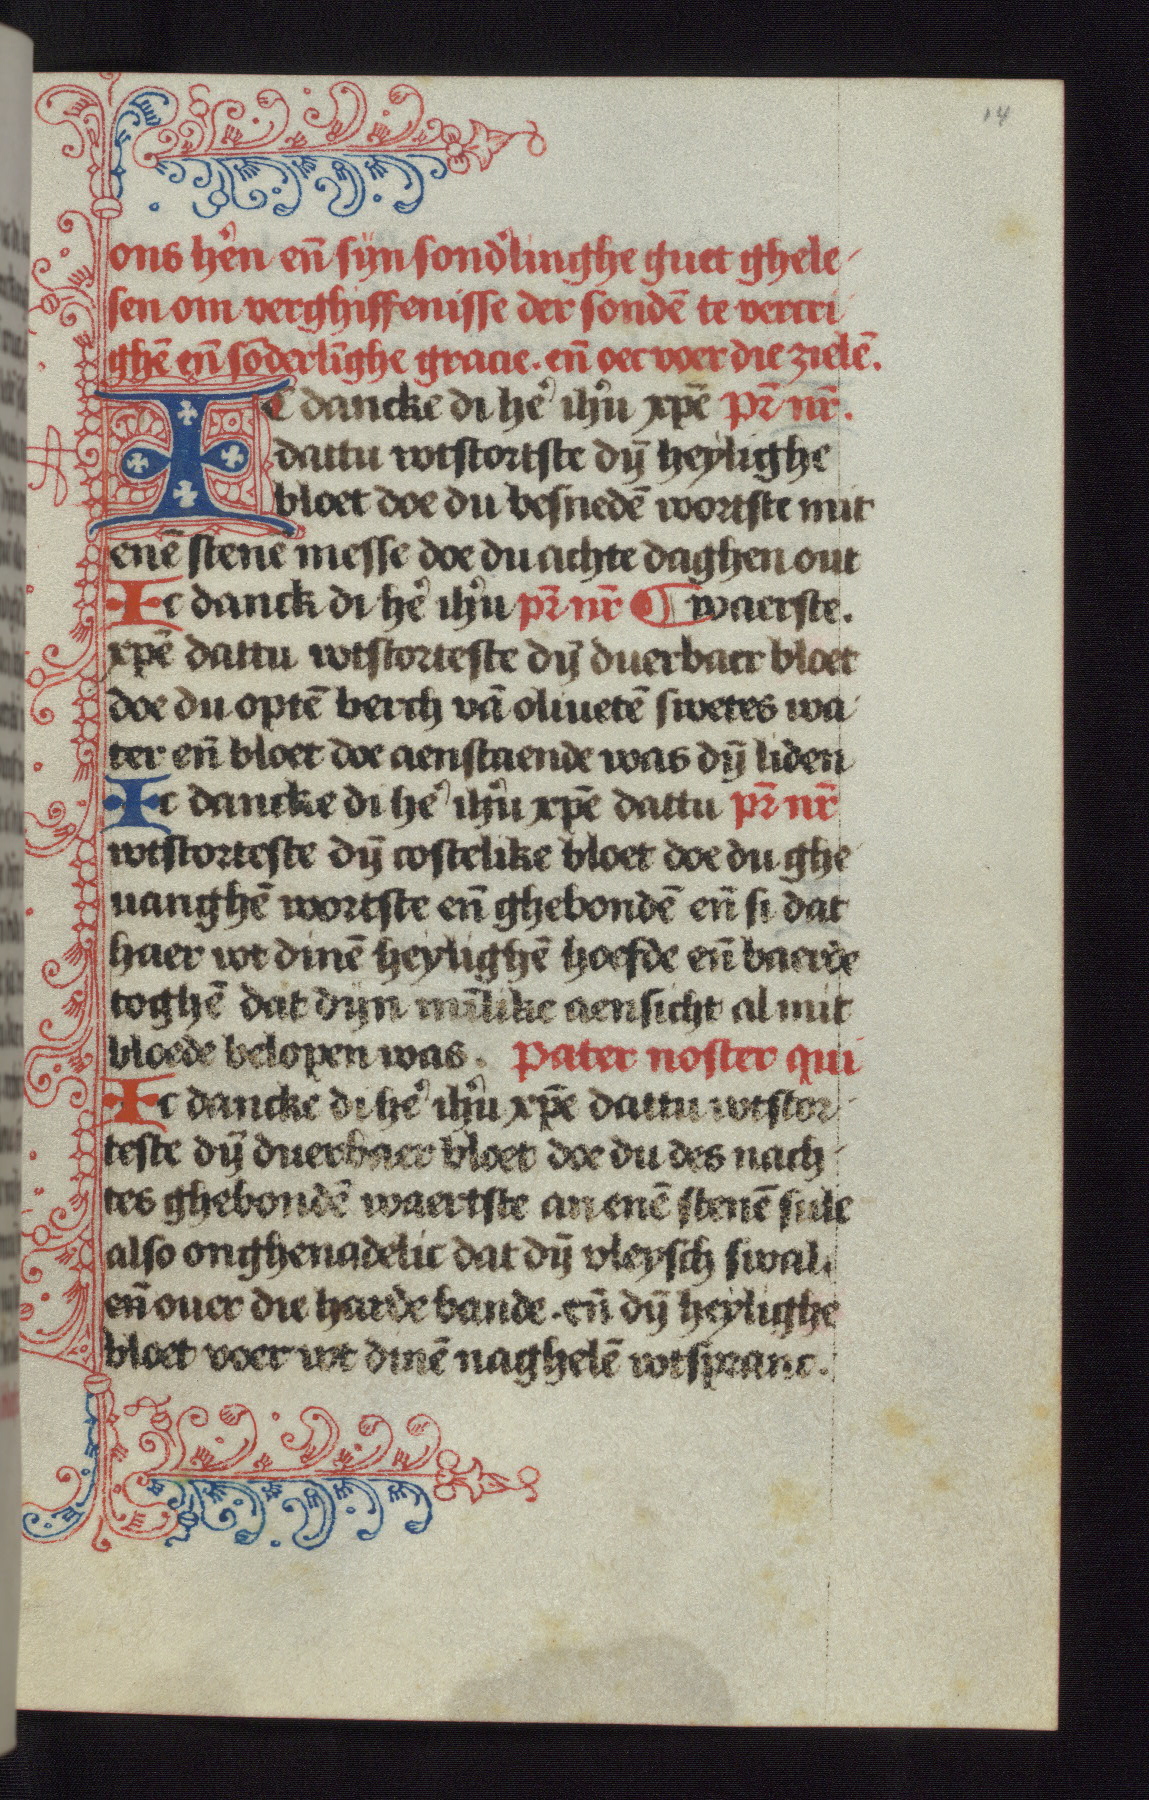 14
ons hēn eñ sijn sondʼlinghe guet ghele
sen om verghiffenisse der sondē te vercri
ghē eñ sōderlīghe gracie. eñ oec voer die zielē.
IC dancke di heʼ ihūʼ xpē pr̄ nr̄.
dattu wtstortste dȳ heylighe
bloet doe du besnedē wortste mit
enē stene messe doe du achte daghen out
Ic danck di heʼ ihūʼ pr̄ nr̄ ¶ waerste.
xpē dattu wtstorteste dȳ duerbaer bloet
doe du optē berch vā oliuetē swetes wa
ter eñ bloet doe aenstaende was dȳ liden
Ic dancke di heʼ ihūʼ xpē dattu pr̄ nr̄
wtstorteste dȳ costelike bloet doe du ghe
uanghē wortste eñ ghebondē eñ si dat
haer wt dinē heylighē hoefde eñ baerde
toghē dat dijn mīlike aensicht al mit
bloede belopen was. Pater noster qui
Ic dancke di heʼ ihūʼ xpē dattu wtstor
teste dȳ duerbaer bloet doe du des nach
tes ghebondē waertste an enē stenē sule
also onghenadelic dat dȳ vleysch swal.
eñ ouer die harde bande. eñ dȳ heylighe
bloet voer wt dinē naghelē wtspranc.